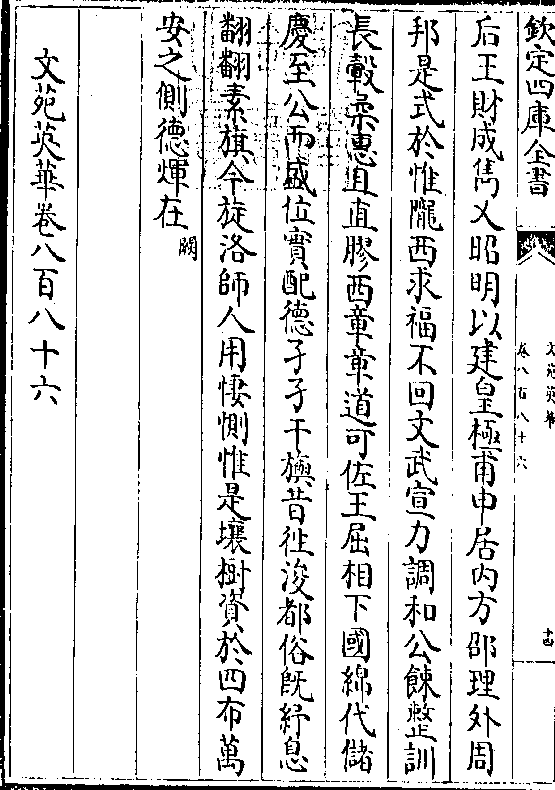 欽定四庫全書
文苑英華
卷八百八十六
十四
后王財成雋乂昭明以建皇極甫申居内方邵理外周
邦是式於惟隴西求福不回文武宣力調和公餗整訓
長轂柔惠且直膠西章章道可佐王屈相下國綿代儲
慶至公而盛位實配德孑孑干旟昔徃浚都俗既紓息
翻翻素旗今旋洛師人用悽惻惟是壤樹資於四布萬
安之側德煇在闕
文苑英華卷八百八十六